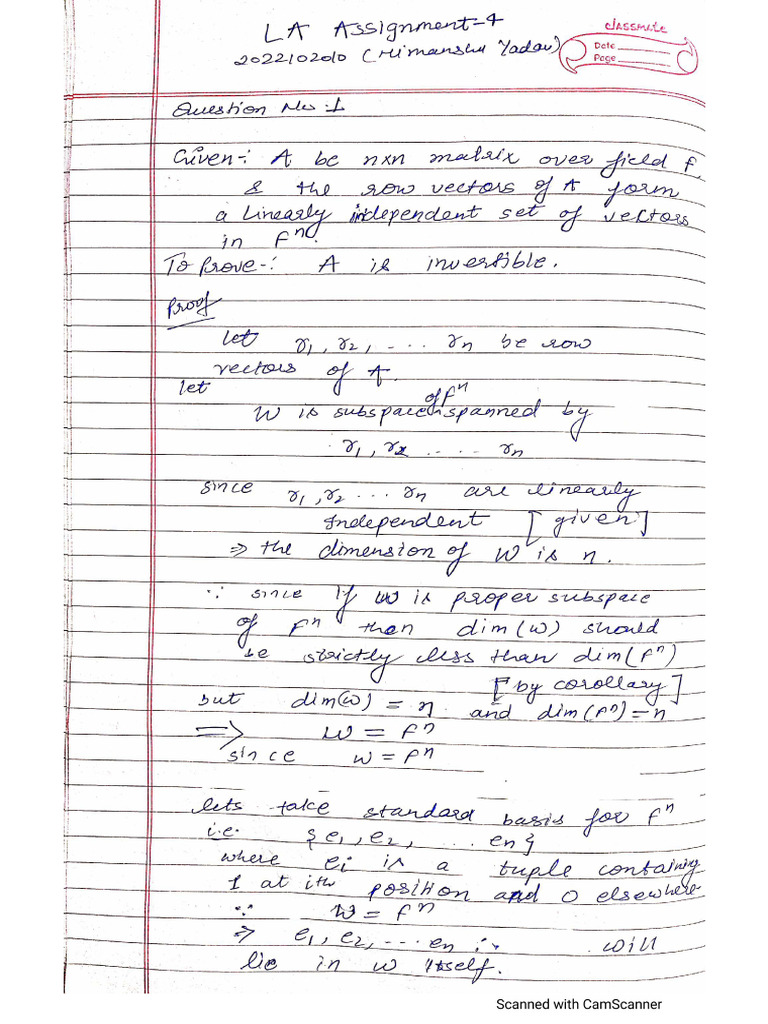 LA Assignment-4
classmate
2022102010 (Himanshu Yadav)
Date
Page
Question No :1
Given-: A be nxn matrix over field F,
& the row vectors of A form
a linearly independent set of vectors
in Fⁿ.
To prove-: A is invertible.
Proof
let r₁, r₂, ... rₙ be row
vectors of A.
let
W is subspace of Fⁿ spanned by
r₁, r₂ .... rₙ
since r₁, r₂ ... rₙ are linearly
Independent [given]
⇒ the dimension of W is n.
∵ since if W is proper subspace
of Fⁿ then dim(W) should
be strictly less than dim(Fⁿ)
[by corollary]
but dim(W) = n and dim(Fⁿ)=n
⇒ W = Fⁿ
since W = Fⁿ
lets take standard basis for Fⁿ
i.e. {e₁, e₂, ... eₙ}
where ei is a tuple containing
1 at ith position and 0 elsewhere
∵ W = Fⁿ
⇒ e₁, e₂, ... eₙ will
lie in W itself.
Scanned with CamScanner